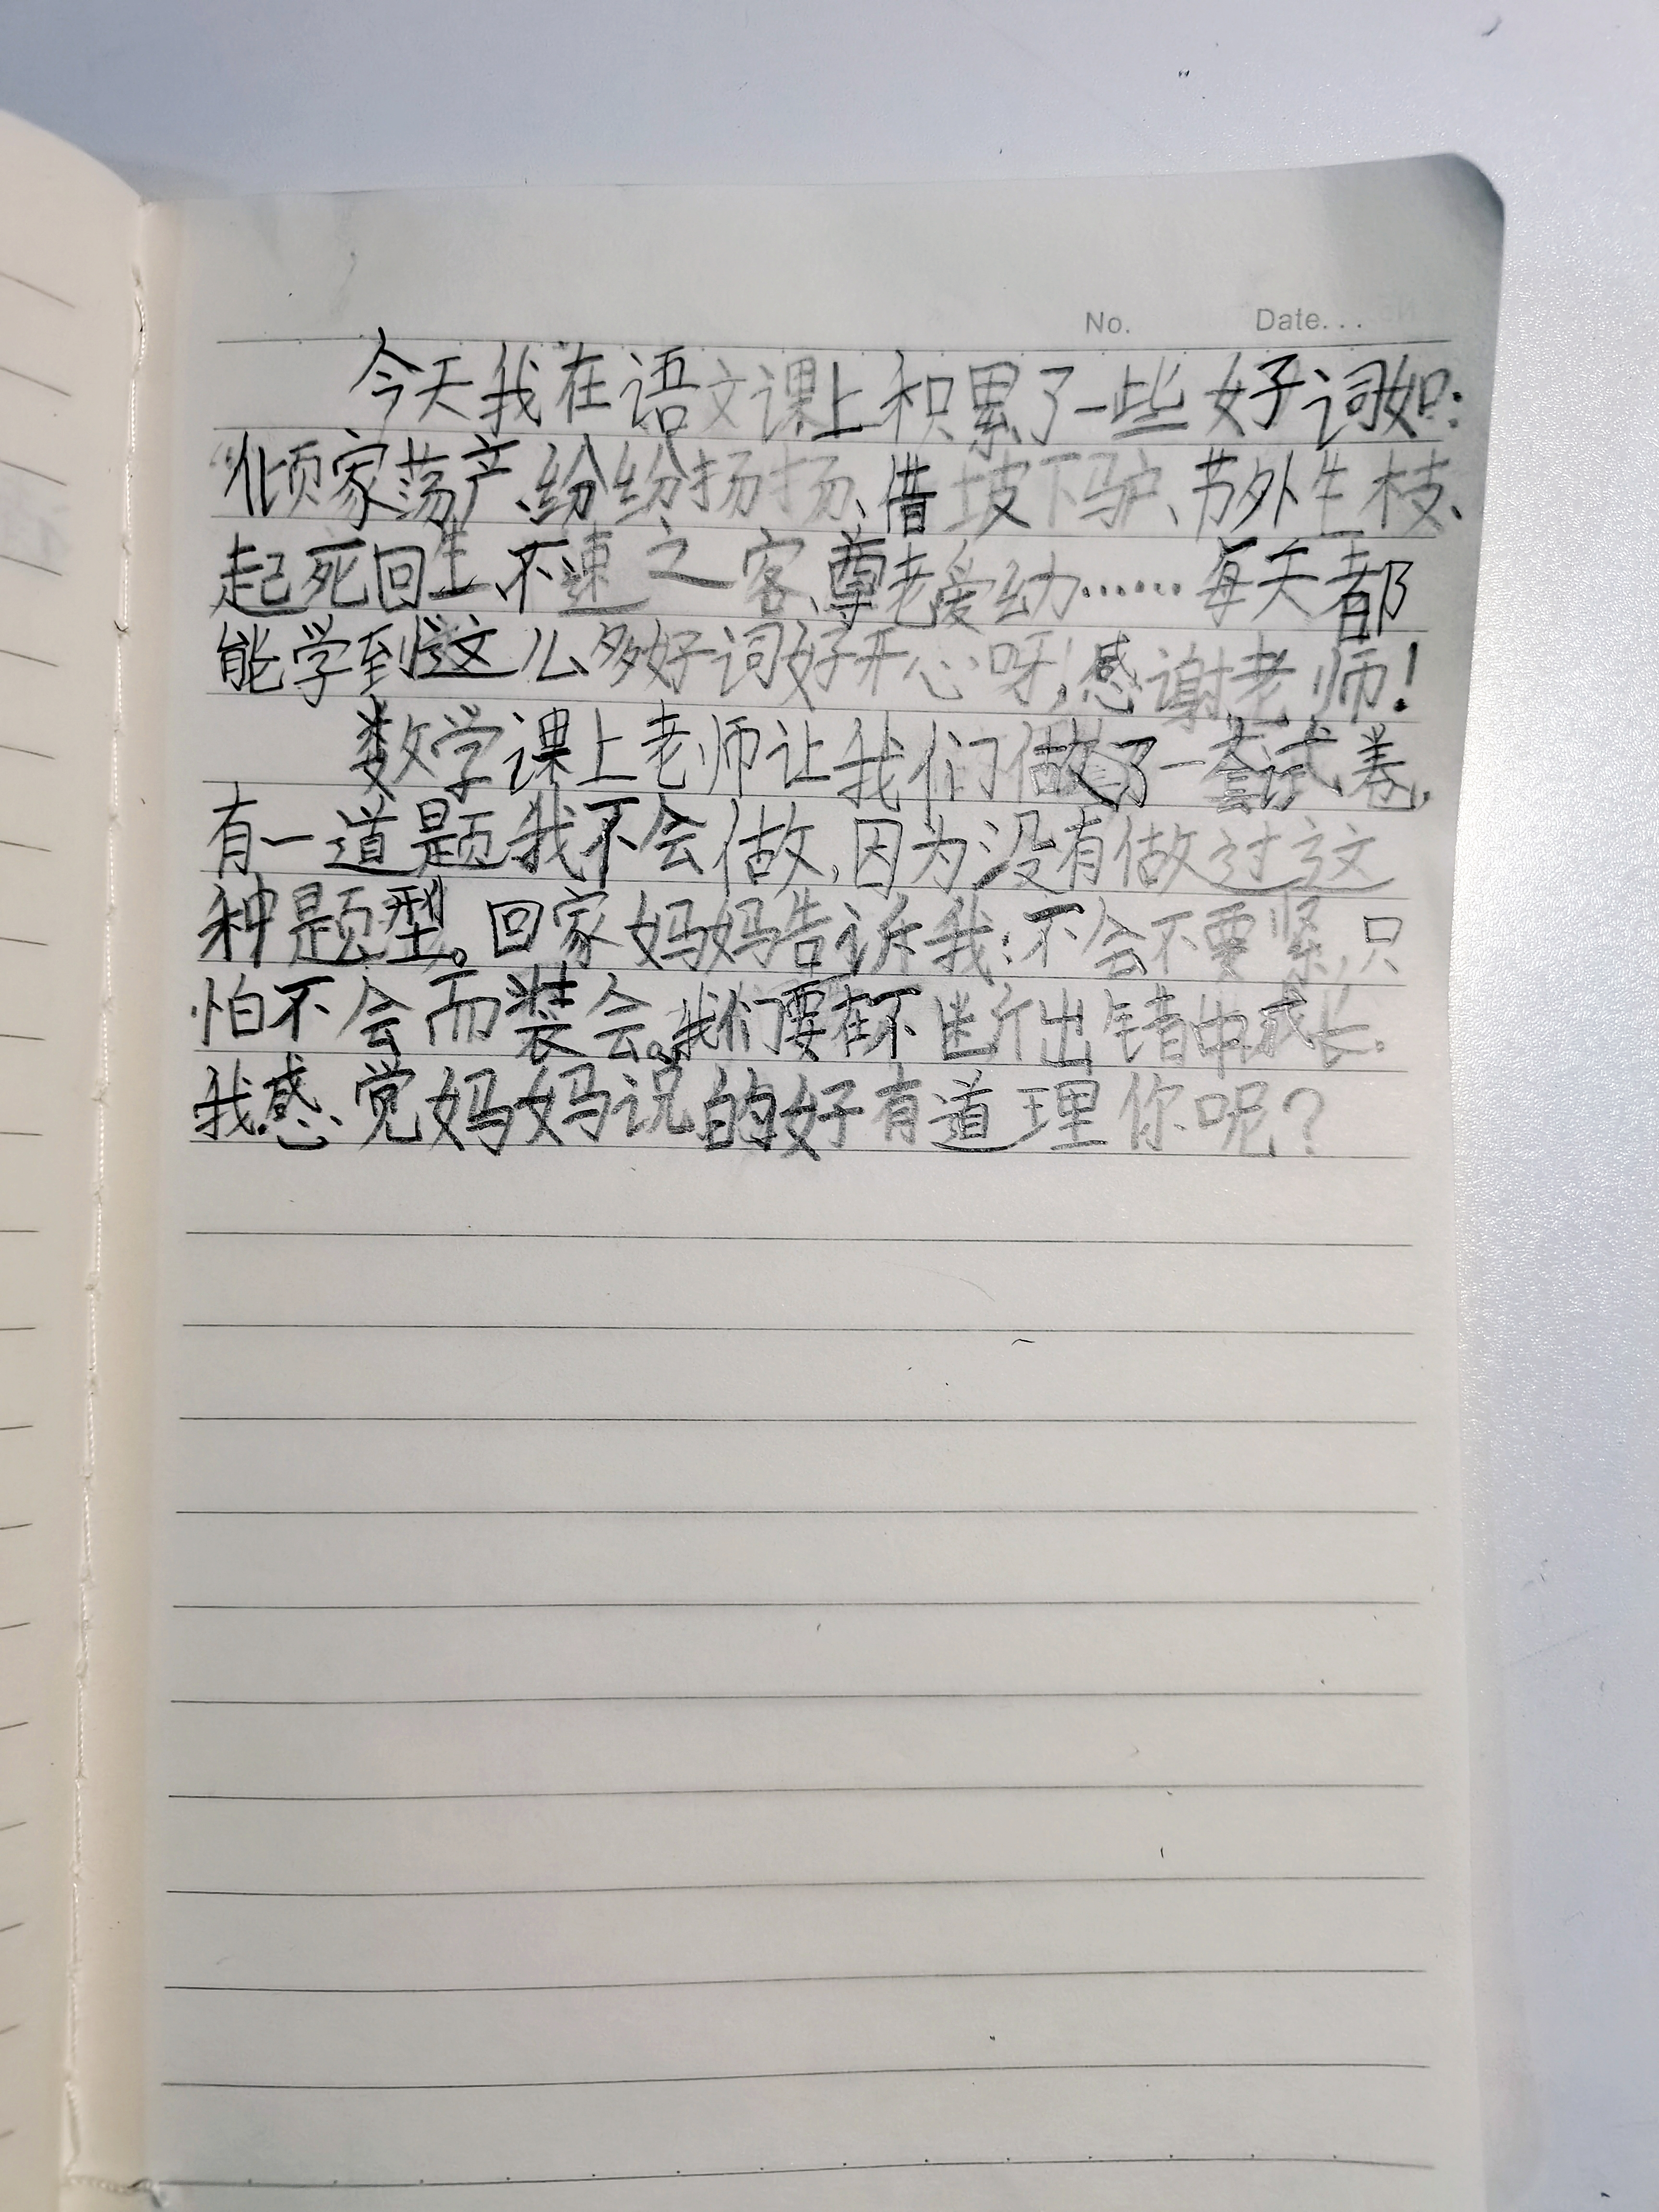 No. Date...
今天我在语文课上积累了一些好词如:
“倾家荡产、纷纷扬扬、借坡下驴、节外生枝、
起死回生、不速之客、尊老爱幼……每天都
能学到这么多好词好开心呀!感谢老师!
数学课上老师让我们做了一套试卷,
有一道题我不会做,因为没有做过这
种题型。回家妈妈告诉我:不会不要紧,只
怕不会而装会。我们要在不断出错中成长。
我感觉妈妈说的好有道理你呢?